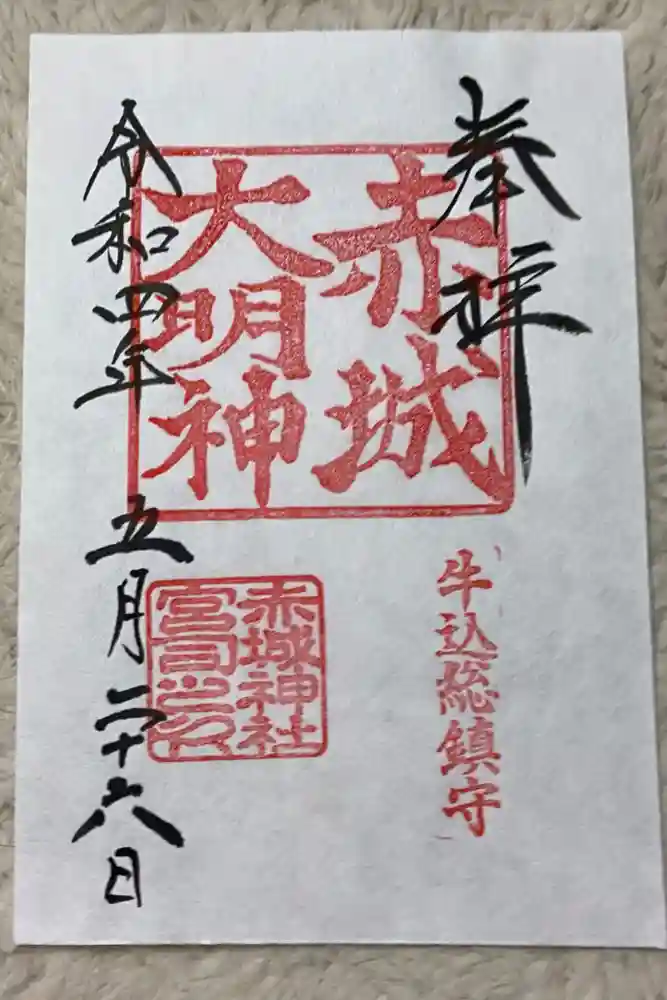 奉拝
赤城
大明神
牛込総鎮守
赤城神社
宮司之印
令和四年 五月二十六日